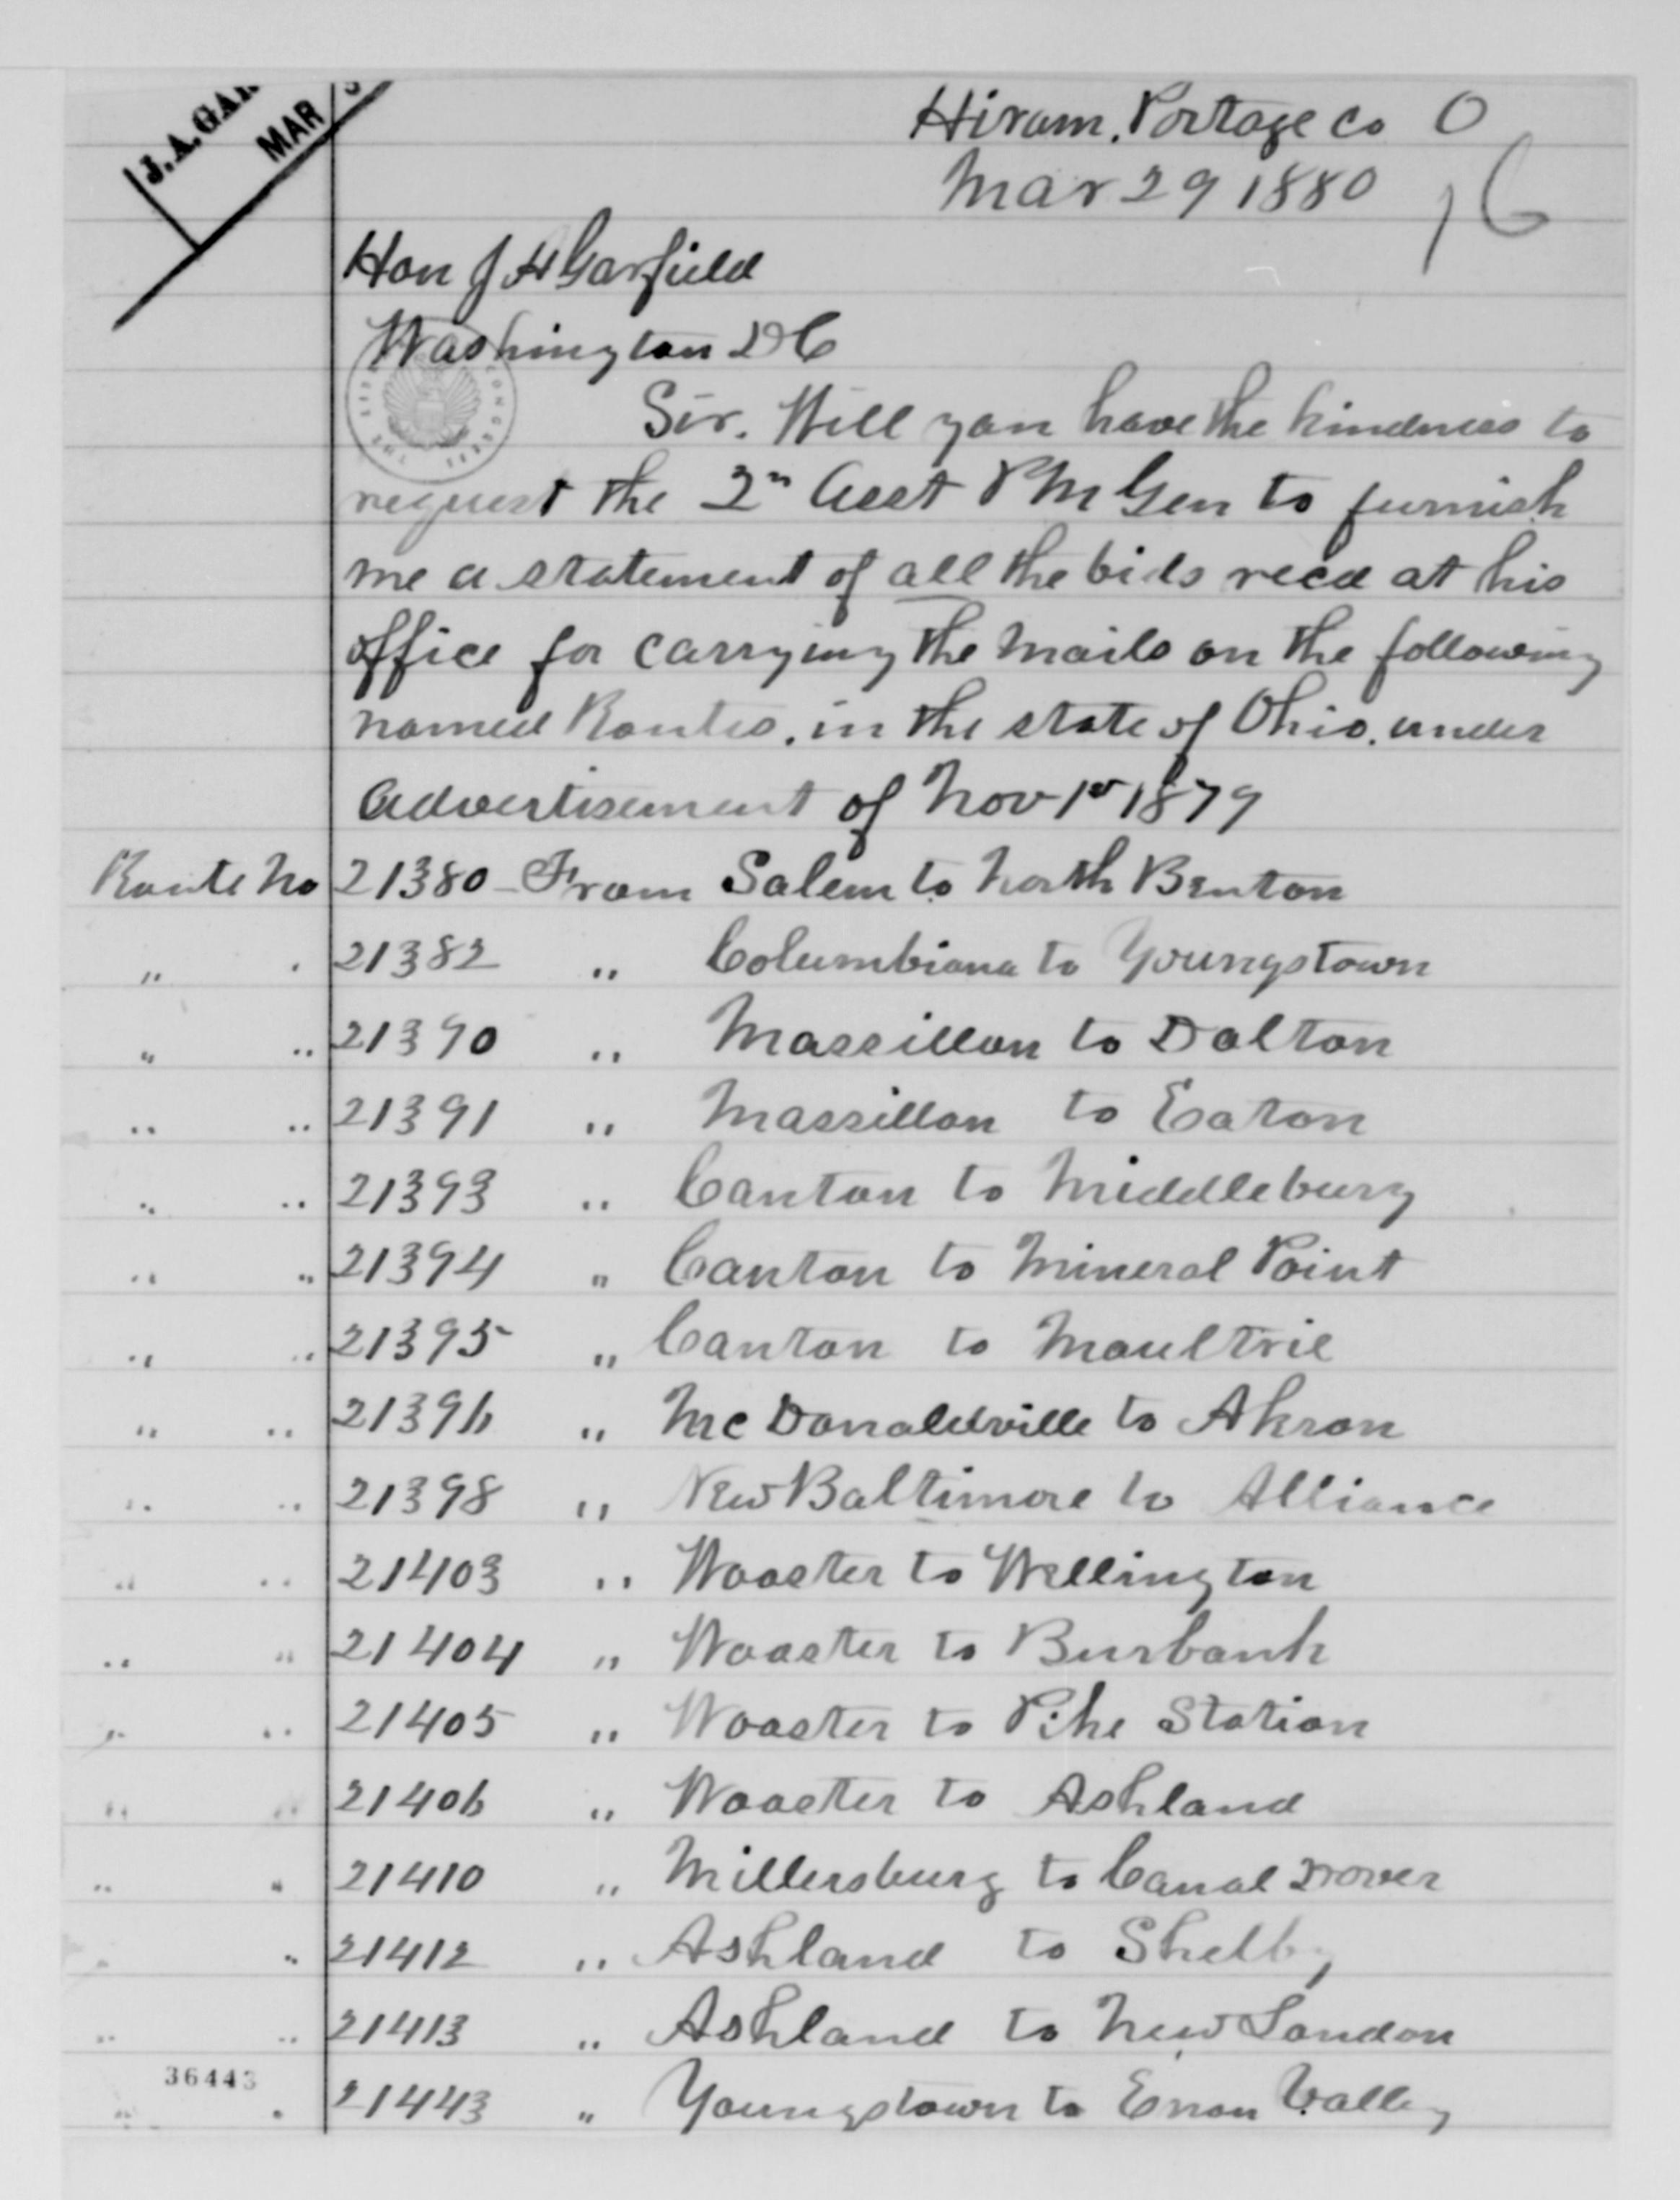 J.A.GAR
MAR
Hiram. Portage Co O
Mar 29 1880
16
Hon J A Garfield
Washington DC
Sir. Will you have the kindness to
request the 2n Asst P M Gen to furnish
me a statement of all the bids recd at his
office for carrying the mails on the following
named Routes. in the state of Ohio. under
advertisement of Nov 1st 1879
Route No 21380 - From Salem to North Benton
" . 21382 " Columbiana to Youngstown
" " 21390 " Massillon to Dalton
" " 21391 " Massillon to Eaton
" " 21393 " Canton to Middleburg
" " 21394 " Canton to Mineral Point
" " 21395 " Canton to Moultrie
" " 21396 " McDonaldsville to Akron
" " 21398 " New Baltimore to Alliance
" " 21403 " Wooster to Wellington
" " 21404 " Wooster to Burbank
" " 21405 " Wooster to Pike Station
" " 21406 " Wooster to Ashland
" " 21410 " Millersburg to Canal Dover
" " 21412 " Ashland to Shelby
" " 21413 " Ashland to New London
36443
" . 21443 " Youngstown to Enon Valley